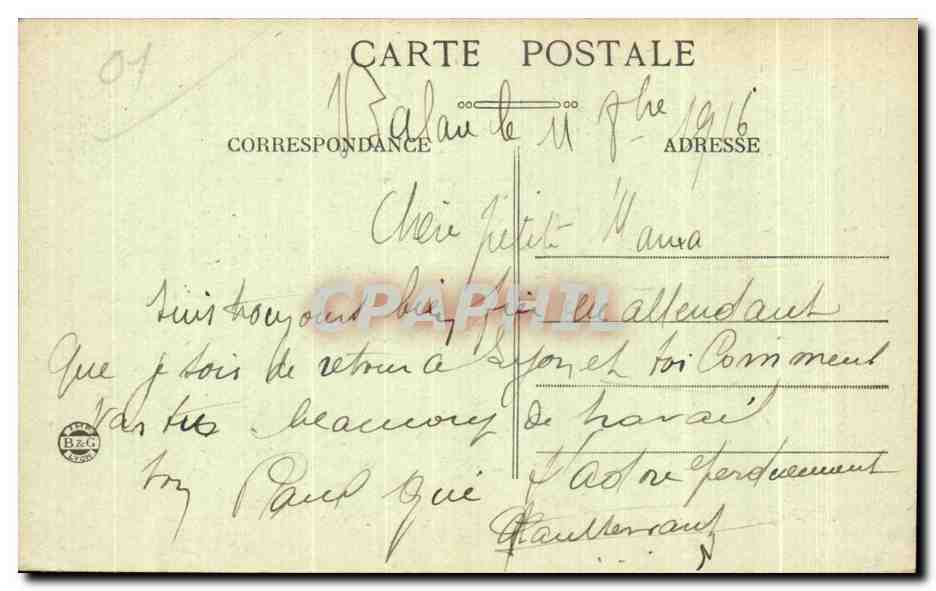 01
CARTE POSTALE
Balan le 11 8bre 1916
CORRESPONDANCE
ADRESSE
Chère petite Mama
CPAPHIL
suis toujours bien en attendant
que je sois de retour a Lyon et toi Comment
vas tu beaucoup de travail
IMP. B & G LYON
ton Paul qui t'adore perduement